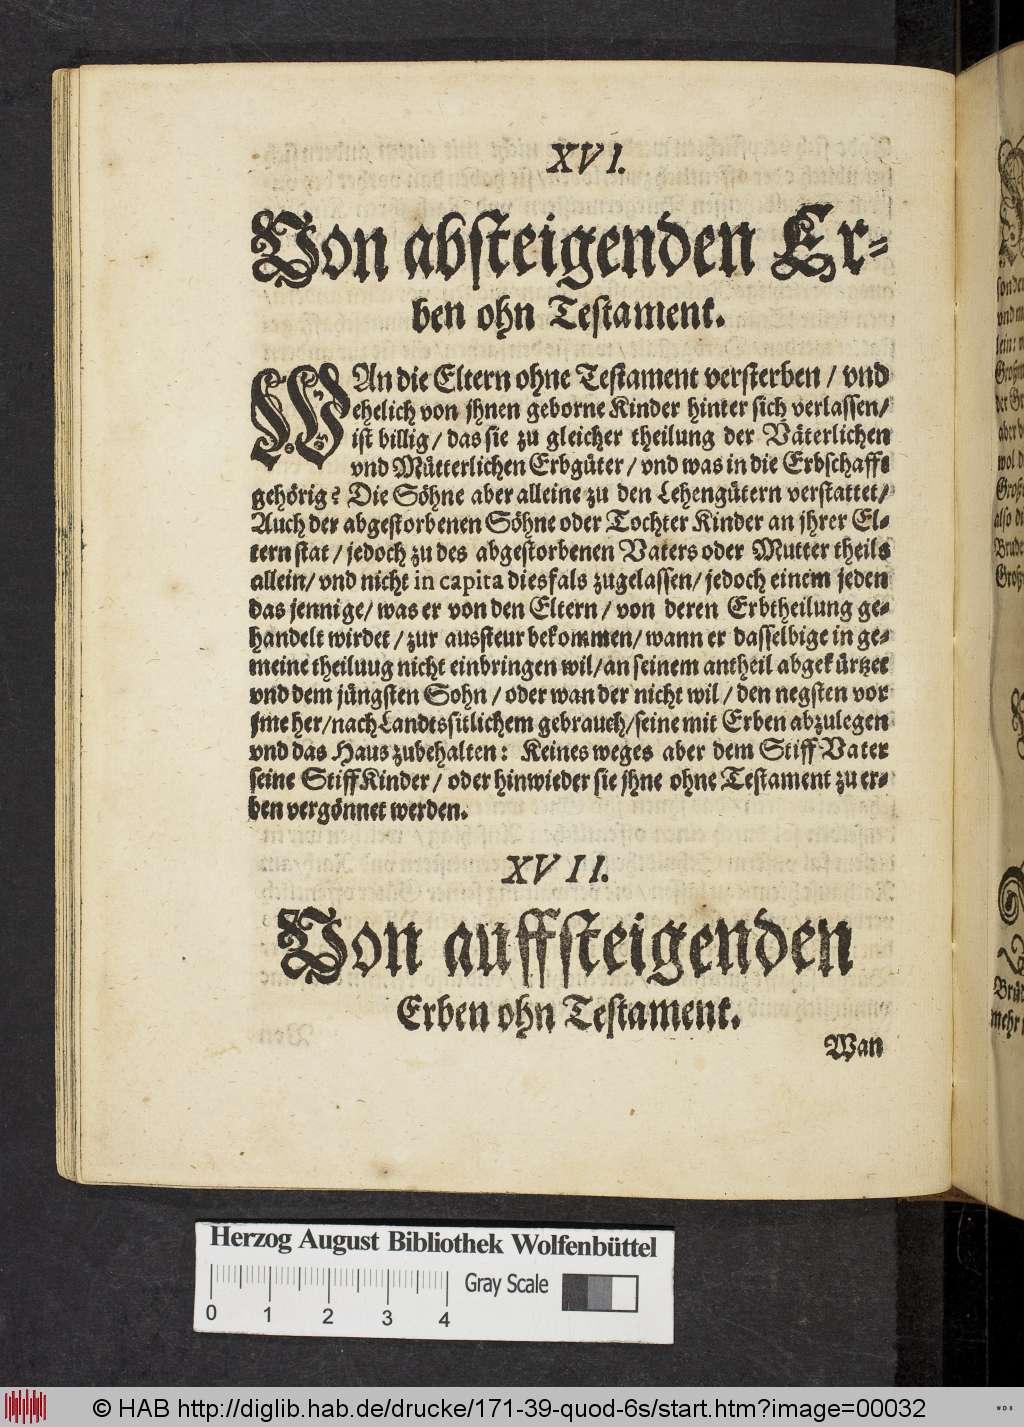 XVI.
Von absteigenden Er-
ben ohn Testament.
WAn die Eltern ohne Testament versterben / vnd
ehelich von jhnen geborne Kinder hinter sich verlassen/
ist billig / das sie zu gleicher theilung der Väterlichen
vnd Mütterlichen Erbgüter / vnd was in die Erbschafft
gehörig? Die Söhne aber alleine zu den Lehengütern verstattet/
Auch der abgestorbenen Söhne oder Tochter Kinder an jhrer El-
tern stat / jedoch zu des abgestorbenen Vaters oder Mutter theils
allein/ vnd nicht in capita diesfals zugelassen/ jedoch einem jeden
das jennige/ was er von den Eltern / von deren Erbtheilung ge-
handelt wirdet / zur aussteur bekommen/ wann er dasselbige in ge-
meine theiluug nicht einbringen wil/ an seinem antheil abgekürtzet
vnd dem jüngsten Sohn / oder wan der nicht wil / den negsten vor
jme her/ nach Landtssitlichem gebrauch/ seine mit Erben abzulegen
vnd das Haus zubehalten: Keines weges aber dem Stiff Vater
seine StiffKinder / oder hinwieder sie jhne ohne Testament zu er-
ben vergönnet werden.
XVII.
Von auffsteigenden
Erben ohn Testament.
Wan
sonder
vnd m
lein:
Großm
der Gr
aber d
wol d
Große
also di
Brude
Groß
Brüd
mehr
Herzog August Bibliothek Wolfenbüttel
Gray Scale
0 1 2 3 4
© HAB http://diglib.hab.de/drucke/171-39-quod-6s/start.htm?image=00032